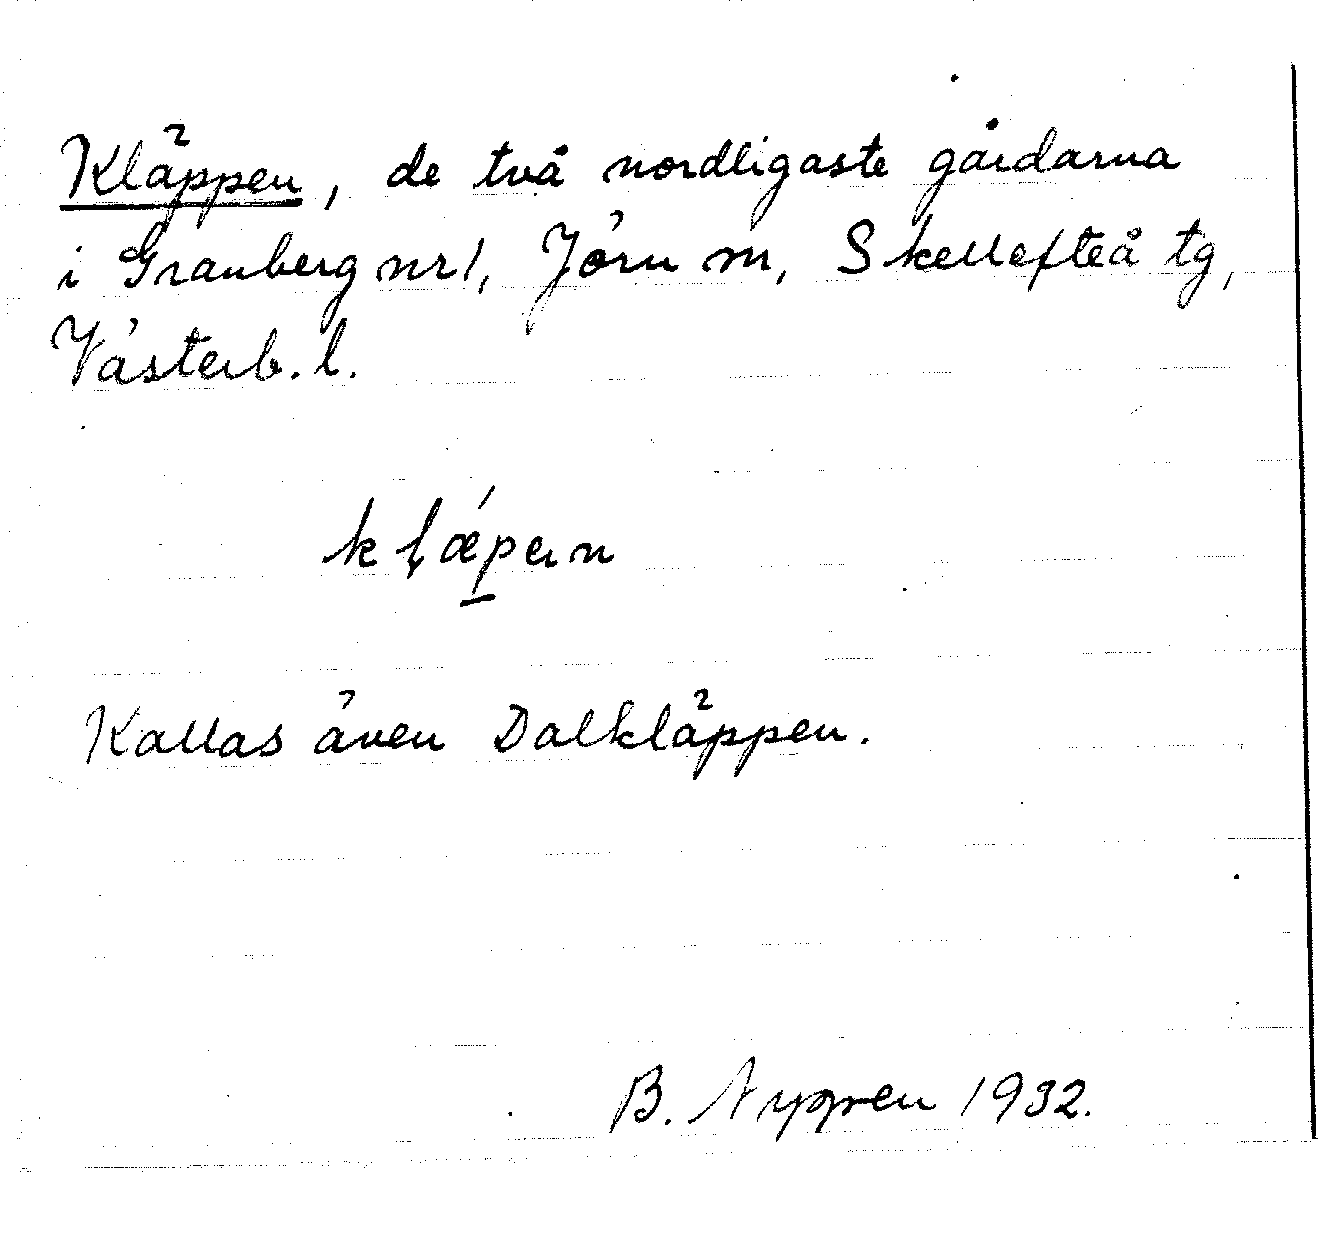 Kläppen, de två nordligaste gårdarna
i Granberg nr 1, Jörn sn, Skellefteå tg,
Västerb. l.
Kallas även Dalkläppen.
B. Nygren 1932.